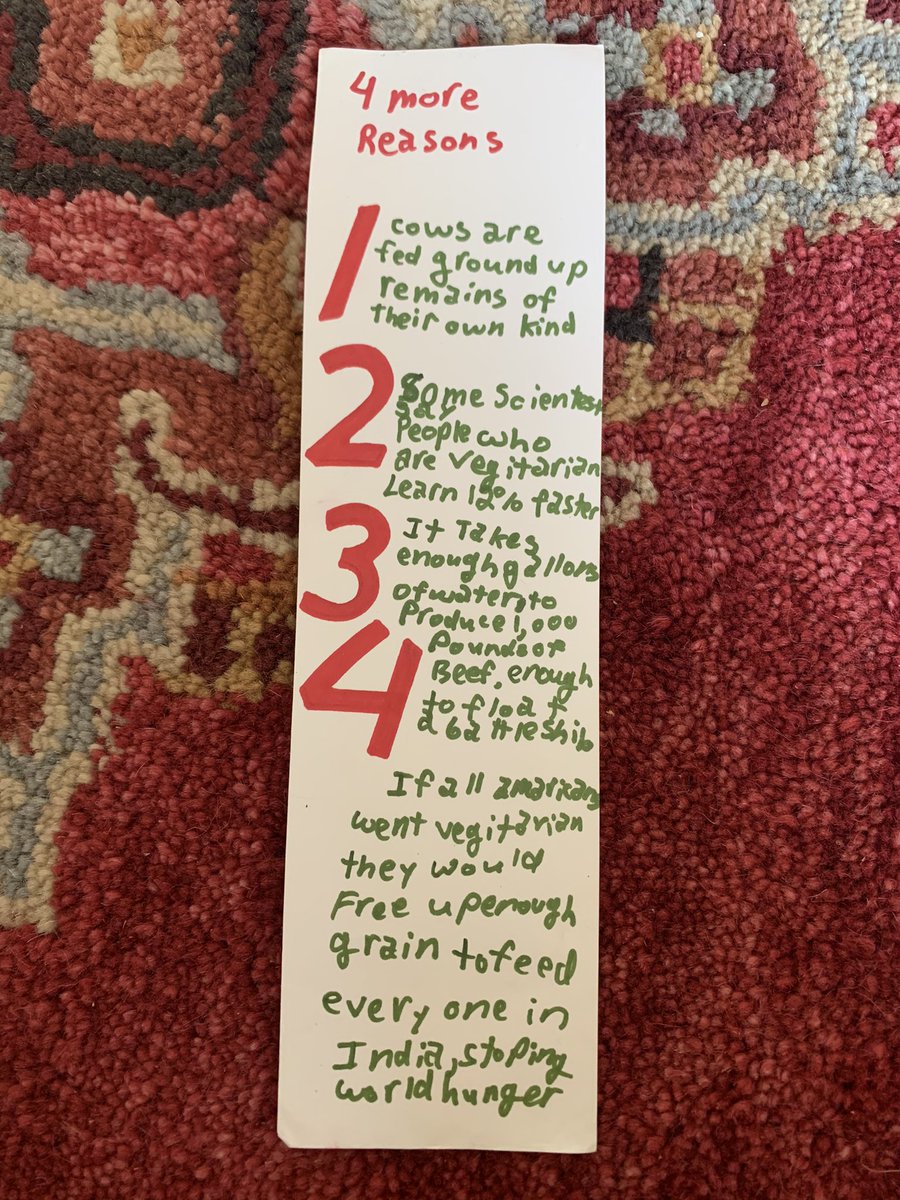 4 more
Reasons
1 cows are
fed ground up
remains of
their own kind
2 Some Scientest
say
People who
are vegitarian
Learn 12% faster
3 It Takes
enough gallons
of water, to
Produce 1,000
Pounds of
4 Beef, enough
to float
a battleship
If all amarikans
went vegitarian
they would
Free up enough
grain to feed
every one in
India, stoping
world hunger